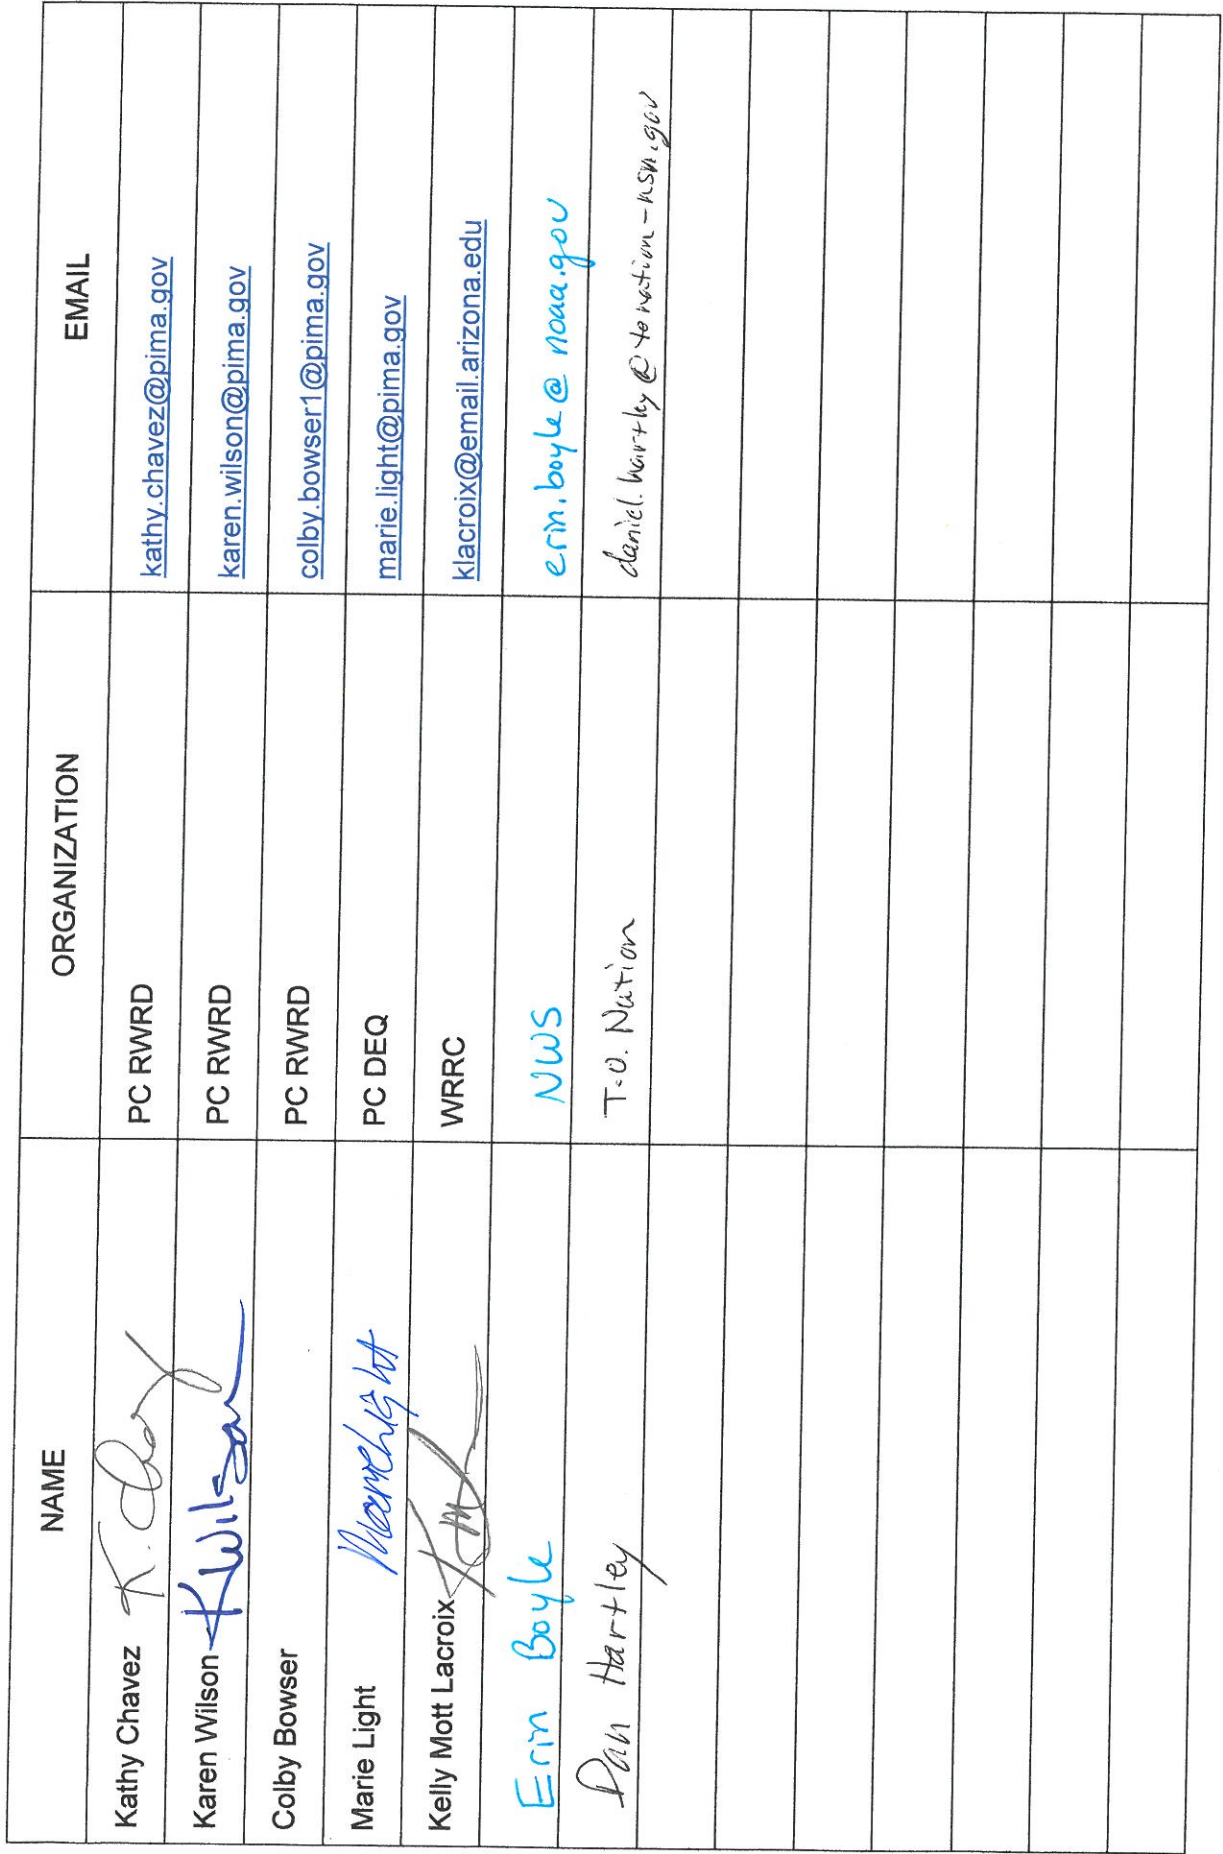 NAME ORGANIZATION EMAIL
Kathy Chavez K. Chavez PC RWRD kathy.chavez@pima.gov
Karen Wilson KWilson PC RWRD karen.wilson@pima.gov
Colby Bowser PC RWRD colby.bowser1@pima.gov
Marie Light Marie Light PC DEQ marie.light@pima.gov
Kelly Mott Lacroix WRRC klacroix@email.arizona.edu
Erin Boyle NWS erin.boyle@noaa.gov
Dan Hartley T.O. Nation daniel.hartley@tonation-nsn.gov